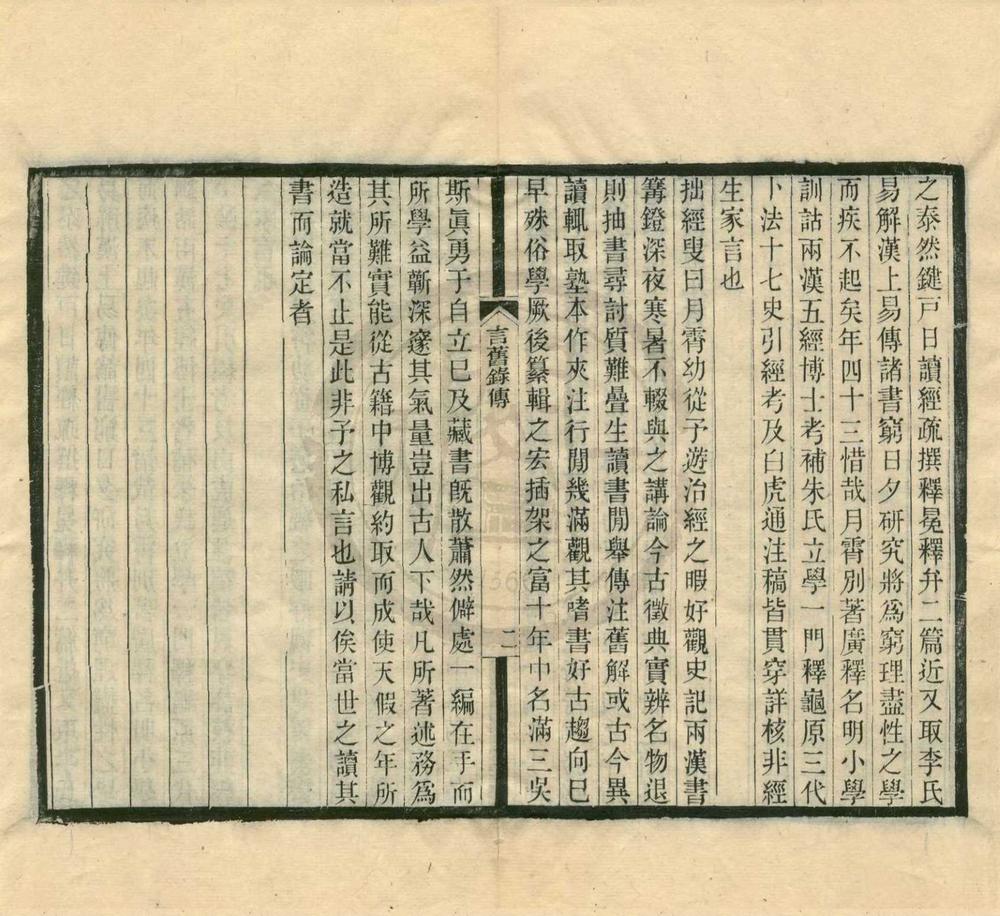 之泰然鍵戸日讀經疏撰釋冕釋弁二篇近又取李氏
易解漢上易傳諸書窮日夕研究將爲窮理盡性之學
而疾不起矣年四十三惜哉月霄別著廣釋名明小學
訓詁兩漢五經博士考補朱氏立學一門釋龜原三代
卜法十七史引經考及白虎通注稿皆貫穿詳核非經
生家言也
拙經叟曰月霄幼從予遊治經之暇好觀史記兩漢書
篝鐙深夜寒暑不輟與之講論今古徵典實辨名物退
則抽書尋討質難疊生讀書閒舉傳注舊解或古今異
讀輒取塾本作夾注行閒幾滿觀其嗜書好古趨向已
早殊俗學厥後纂輯之宏插架之富十年中名滿三吳
言舊錄傳
二
斯眞勇于自立已及藏書既散蕭然僻處一編在手而
所學益斬深邃其氣量豈出古人下哉凡所著述務爲
其所難實能從古籍中博觀約取而成使天假之年所
造就當不止是此非予之私言也請以俟當世之讀其
書而論定者